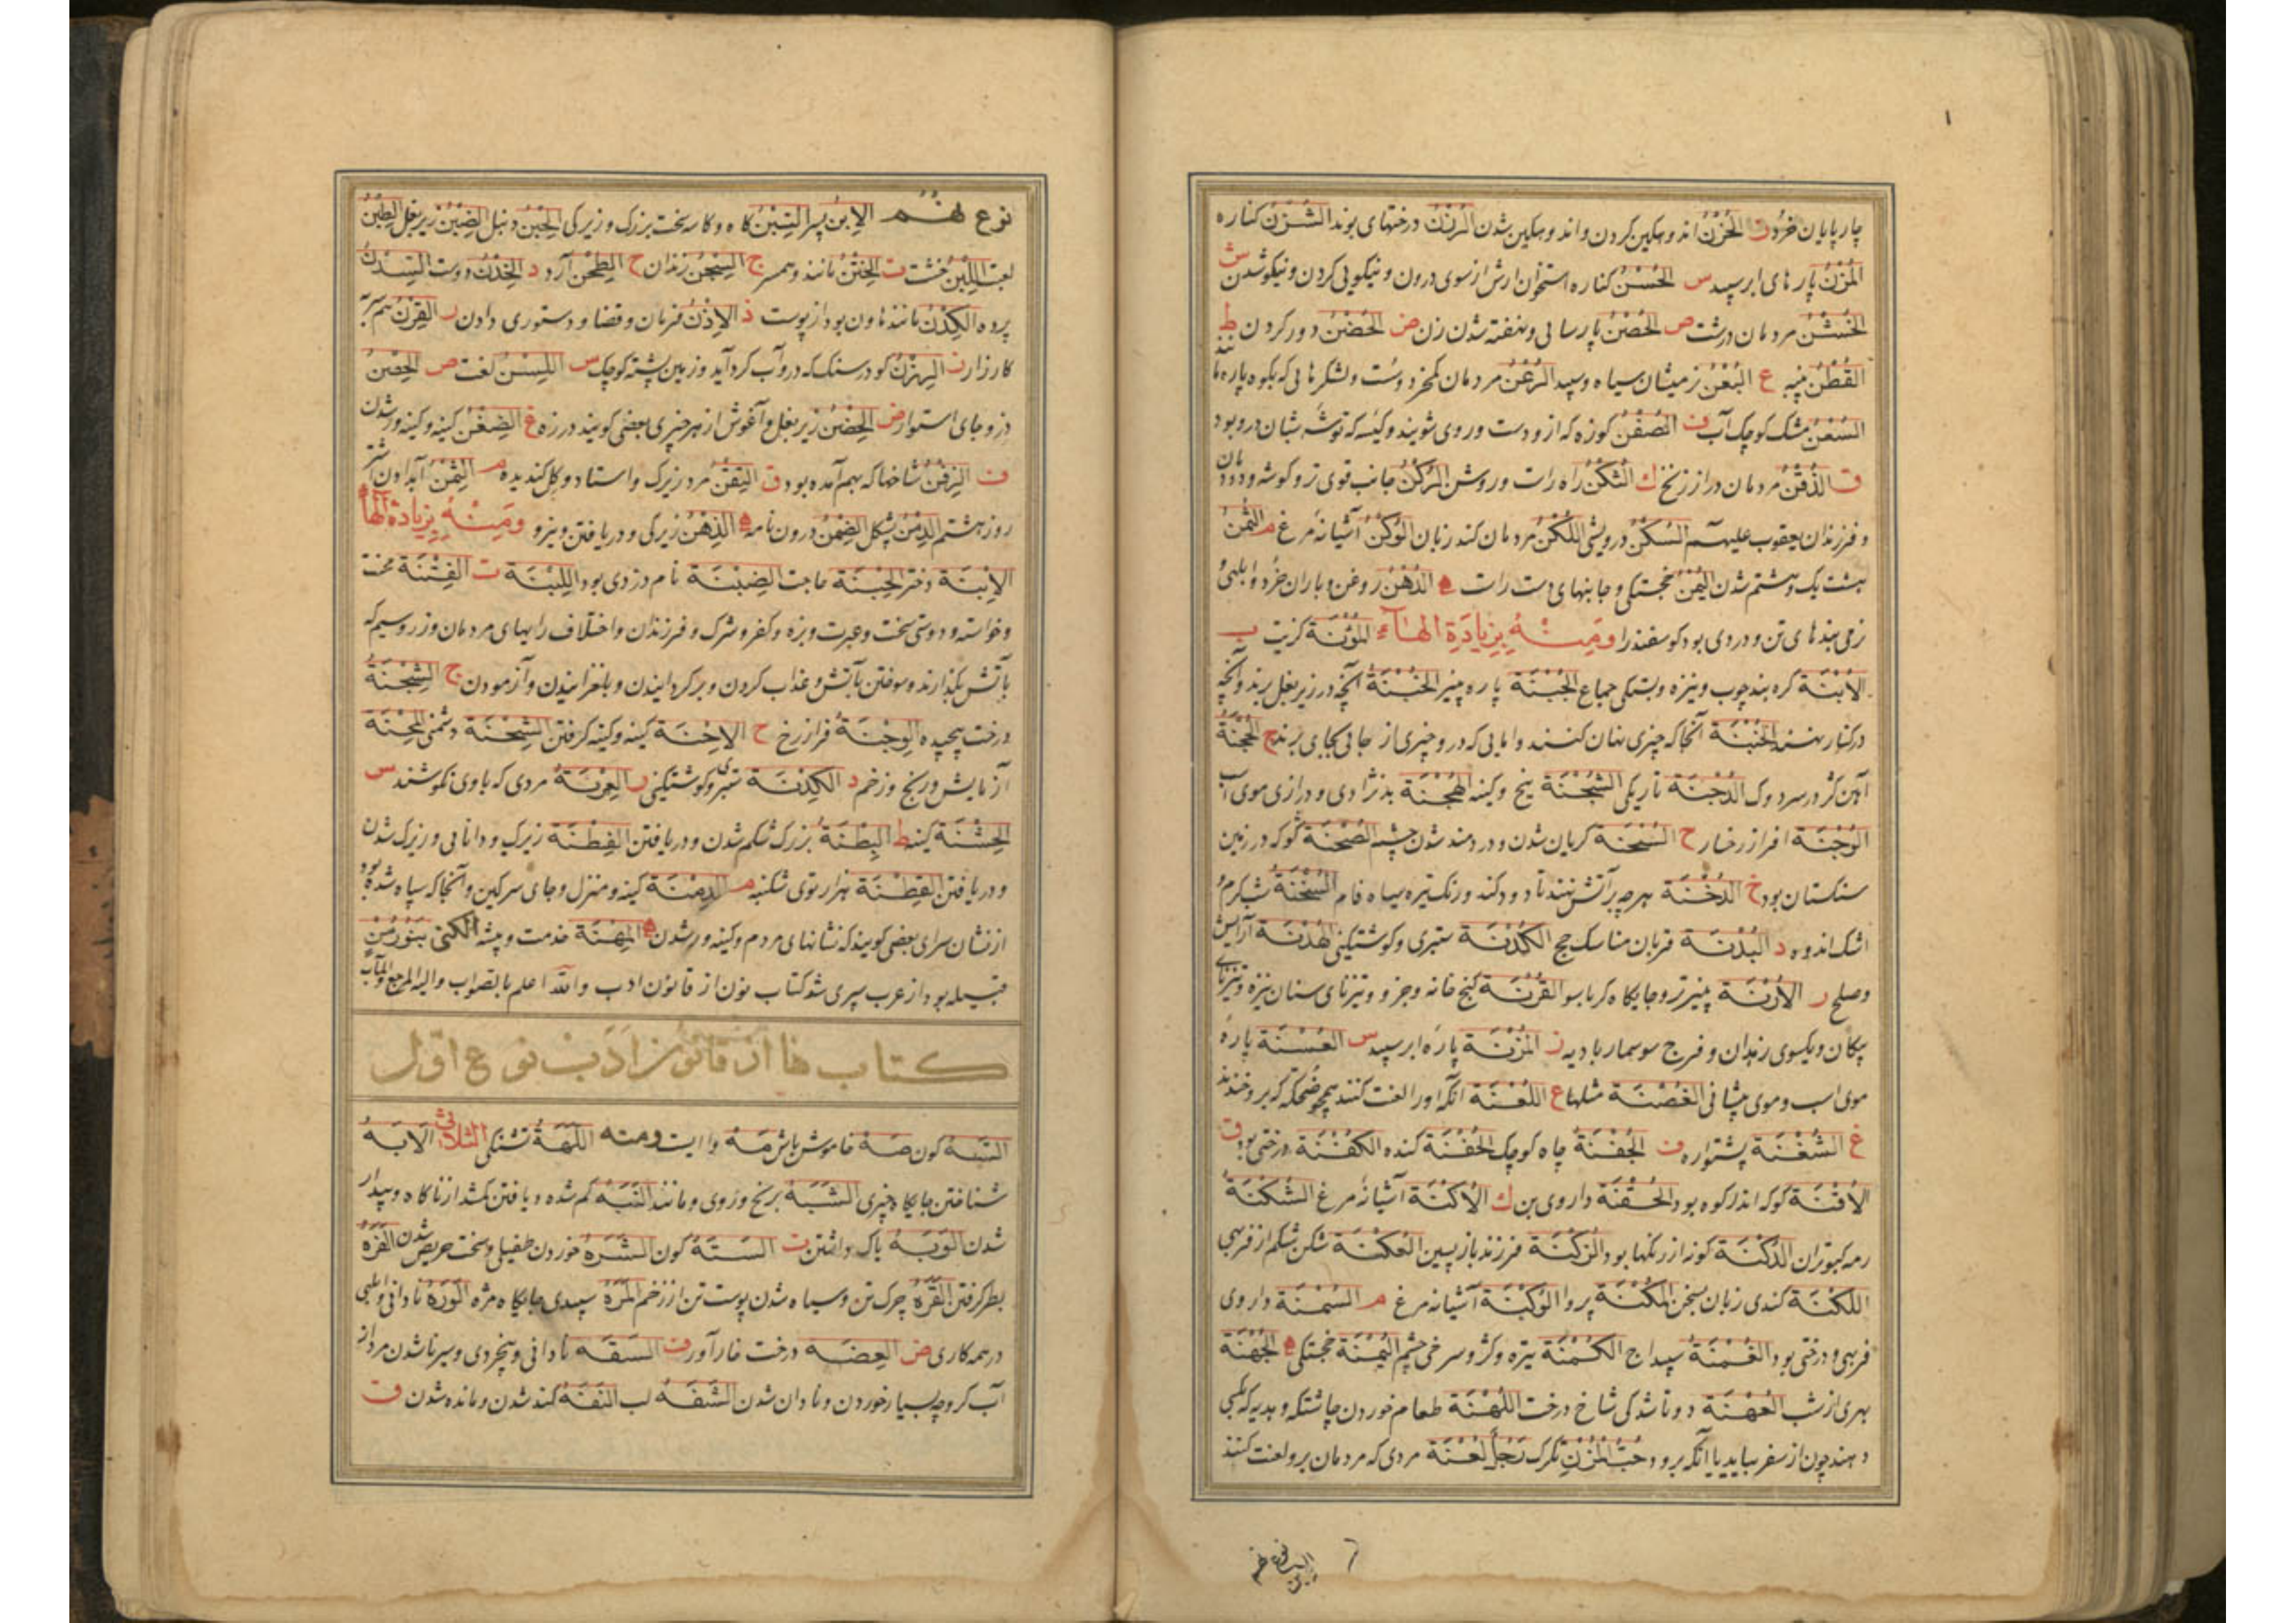 چارپایان خرد ز الحُزْنُ اندوهگین کردن و اندوهگین شدن الرُزْنُ درختهای بوند الشُزْنُ کناره
المُزْنُ پارهای ابر سپید س الحُسْنُ کناره استخوان ارش از سوی درون و نیکویی کردن و نیکو شدن ش
الخُشْنُ مردمان درشت ص الحُصْنُ پارسایی و نهفته شدن زن ض الحُضْنُ دور کردن ط
القُطْنُ پنبه ع البُعْنُ زمیشان سیاه و سپید الرُعْنُ مردمان کم خرد و سست و لشکرهایی که بکوه پاره مانند
السُعْنُ مشک کوچک آب ف الصُفْنُ کوزه که ازو دست و روی شویند و کیسه که توشه شبان درو بود
ق الذُقْنُ مردمان دراز زنخ ك الثُكْنُ راه راست و روش الرُكْنُ جانب قوی تر و گوشه و دودمان
و فرزندان یعقوب علیهم السُكْنُ درویشی اللُكْنُ مردمان کند زبان الوُكْنُ آشیانه مرغ م الثُمْنُ
هشت یک و هشتم شدن الیُمْنُ خجستگی و جانبهای دست راست ه الدُهْنُ روغن و باران خرد و ابلهی و
نرمی بندهای تن و دردی بود گوسفند را ومنه بزیادة الهاء المُؤْنَة گزیت ب
الأُبْنَة گره بند چوب و نیزه و بستگی جماع الجُبْنَة پاره پنیر الخُبْنَة آنچه در زیر بغل برند و آنچه
در کنار نهند الخُبْنَة آنجا که چیزی نهان کنند و ابایی که درو چیزی از جایی بجای برند ج الحُجْنَة
آهن کژ در سر دوک الدُجْنَة تاریکی الشُجْنَة بیخ و کینه الهُجْنَة بدنژادی و درازی موی اسپ
الوُجْنَة افراز رخسار ح السُخْنَة گریان شدن و دردمند شدن چشم الصُحْنَة گوکه در زمین
سنگستان بود خ الدُخْنَة هرچه بر آتش نهند تا دود کند و رنگ تیره سیاه فام السُخْنَة شب گرم و
اشک اندوه د البُدْنَة قربان مناسک حج الكُدْنَة ستبری و گوشتگینی الهُدْنَة آرامش
و صلح ر الأُرْنَة پنیر تر و جایگاه کرباسو القُرْنَة کنج خانه و جز و تیزنای سنان نیزه و تیزنای
پیکان و یکسوی زهدان و فرج سوسمار بادیه ز المُزْنَة پاره ابر سپید س العُسْنَة پاره
موی اسپ و موی پیشانی الغُصْنَة مثلها ع اللُعْنَة آنکه او را لعنت کنند همچو ضحکه که برو خندند
غ الشُغْنَة پشتواره ف الجُفْنَة چاه کوچک الحُفْنَة کنده الكُفْنَة درختی بود ق
الأُقْنَة گوکه اندر کوه بود الحُقْنَة داروی بن ك الأُكْنَة آشیانه مرغ الثُكْنَة
رمه کبوتران الدُكْنَة گونه از رنگها بود الزُكْنَة فرزند بازپسین العُكْنَة شکن شکم از فربهی
اللُكْنَة کندی زبان بسخن المُكْنَة پروا الوُكْنَة آشیانه مرغ م السُمْنَة داروی
فربهی و درختی بود الغُمْنَة سپیداج الكُمْنَة تیره و کژ و سرخی چشم الیُمْنَة خجستگی ه الجُهْنَة
بهری از شب العُهْنَة دوتا شدگی شاخ درخت اللُهْنَة طعام خوردن چاشتگه و هدیه که بکسی
دهند چون از سفر بیاید یا آنکه برود حَبُّ المُزْنِ تگرک رَجُلٌ لُعْنَة مردی که مردمان برو لعنت کنند
نوع نهم الإبن پسر التِبْنُ کاه و کاسه سخت بزرگ و زیرکی الحِبْنُ دنبل الضِبْنُ زیر بغل الطِبْنُ
لعبت اللِبْنُ خشت ت الخِتْنُ مانند و همسر ج السِجْنُ زندان ح الطِحْنُ آرد د الخِدْنُ دوست السِدْنُ
پرده الكِدْنُ مانند هاون بود از پوست ذ الإذْنُ فرمان و قضا و دستوری دادن ر القِرْنُ همسر به
کارزار ز الهِزْنُ گو در سنگ که درو آب گرد آید و زمین پشته کوچک س اللِسْنُ لغت ص الحِصْنُ
دز و جای استوار ض الحِضْنُ زیر بغل و آغوش از هر چیزی بعضی گویند درزه غ الضِغْنُ کینه و کینه ور شدن
ف الزِفْنُ شاخها که بهم آمده بود ق التِقْنُ مرد زیرک و استاد و گل گندیده م الثِمْنُ آب دادن شتر
روز هشتم الدِمْنُ پشکل الضِمْنُ درون نامه ه الذِهْنُ زیرکی و دریافتن و نیرو ومنه بزیادة الهاء
الإبْنَة دختر الحِبْنَة حاجت الضِبْنَة نام دزدی بود اللِبْنَة ت الفِتْنَة محنت
و خواسته و دوستی سخت و عبرت و بزه و کفر و شرک و فرزندان و اختلاف رایهای مردمان و زر و سیم که
بآتش بگدازند و سوختن بآتش و عذاب کردن و برگردانیدن و بلغزانیدن و آزمودن ج الشِجْنَة
درخت پیچیده الوِجْنَة فراز رخ ح الإحْنَة کینه و کینه گرفتن الشِحْنَة دشمنی المِحْنَة
آزمایش و رنج و زخم د الكِدْنَة ستبری و گوشتگینی ر العِرْنَة مردی که با وی نکوشند س
الحِشْنَة کینه ط البِطْنَة بزرگ شکم شدن و دریافتن الفِطْنَة زیرک و دانایی و زیرک شدن
و دریافتن القِطْنَة هزار توی شکنبه م الدِمْنَة کینه و منزل و جای سرگین و آنجا که سیاه شده بود
از نشان سرای بعضی گویند که نشانهای مردم و کینه ور شدن ه المِهْنَة خدمت و پیشه الکنی بنو زمن
قبیله بود از عرب سپری شد کتاب نون از قانون ادب والله اعلم بالصواب والیه المرجع والمآب
کتاب ها از قانون ادب نوع اول
التَبَه کون صَه خاموش باش مَه وا ایست ومنه اللَهَّةُ تشنگی الثلاثی الأبَهُ
شناختن جایگاه چیزی الشَبَهُ برنج و روی و مانند النَبَهُ گم شده و یافتن گمشده از ناگاه و بیدار
شدن الوَبَهُ باک داشتن ت السَتَهُ کون الشَرَهُ خوردن طفیلی و سخت حریص شدن الفَرَهُ
بطر گرفتن القَرَهُ چرک تن و سیاه شدن پوست تن از زخم المَرَهُ سپیدی جایگاه مژه الوَرَهُ نادانی و ابلهی
در همه کاری ض العِضَه درخت خارآور ف السَفَه نادانی و بیخردی و سیر ناشدن مرد از
آب گرچه بسیار خوردن و نادان شدن الشَفَه لب النَفَهُ کند شدن و مانده شدن ق